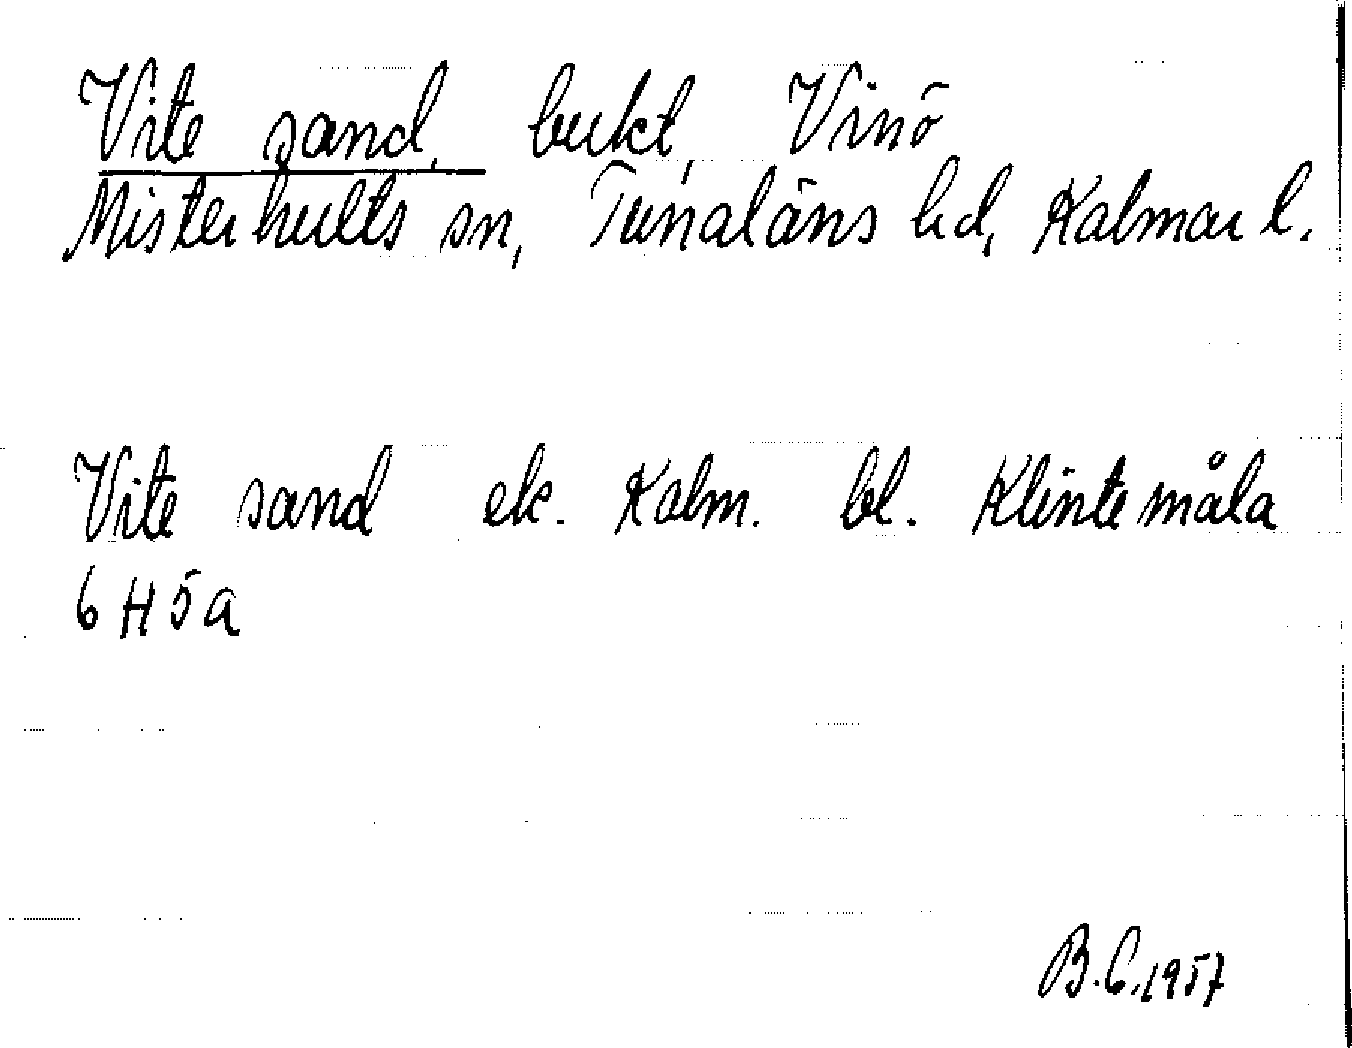 Vite sand, bukt, Vinö
Misterhults sn, Tunaläns hd, Kalmar l.
Vite sand ek. Kalm. bl. Klintemåla
6H5a
B.C. 1957